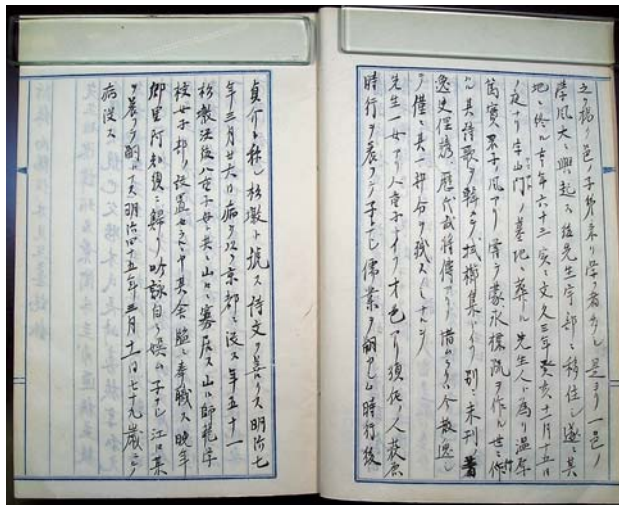 之ヲ揚ケ邑ノ子弟来リ学フ者多シ是ヨリ一邑ノ
学風大ニ興起ス後先生宇部ニ移住シ遂ニ其
地ニ終ル享年六十三実ニ文久三年癸亥十一月十五日
ノ夜ナリ字山門ノ墓地ニ葬ル先生人ト為リ温厚
篤実君子ノ風アリ嘗テ蒙求標疏ヲ作ル世ニ行
ル其詩歌ヲ輯メテ拡櫛集トイフ別ニ未刊ノ著
逸史俚謡歴代武将傳アリ惜ムラクハ今散逸シ
テ僅ニ其一部分ヲ残スノミナルヲ
先生一女アリ八重子トイフ才色アリ須佐ノ人萩原
時行ヲ養フテ子トナシ儒業ヲ嗣カシム時行後
貞介ト称シ松墩ト号ス詩文ヲ善クス明治七
年三月廿六日病ヲ以テ京都ニ没ス年五十一
松墩没後八重子母ト共ニ山口ニ寡居ス山口師範学
校女子部ノ設置セラルヽヤ其舎監ニ奉職ス晩年
郷里阿知須ニ帰リ吟詠自ラ娯ム子ナシ江口某
ヲ養フテ嗣トナス明治四十五年三月十一日七十九歳ニテ
病没ス